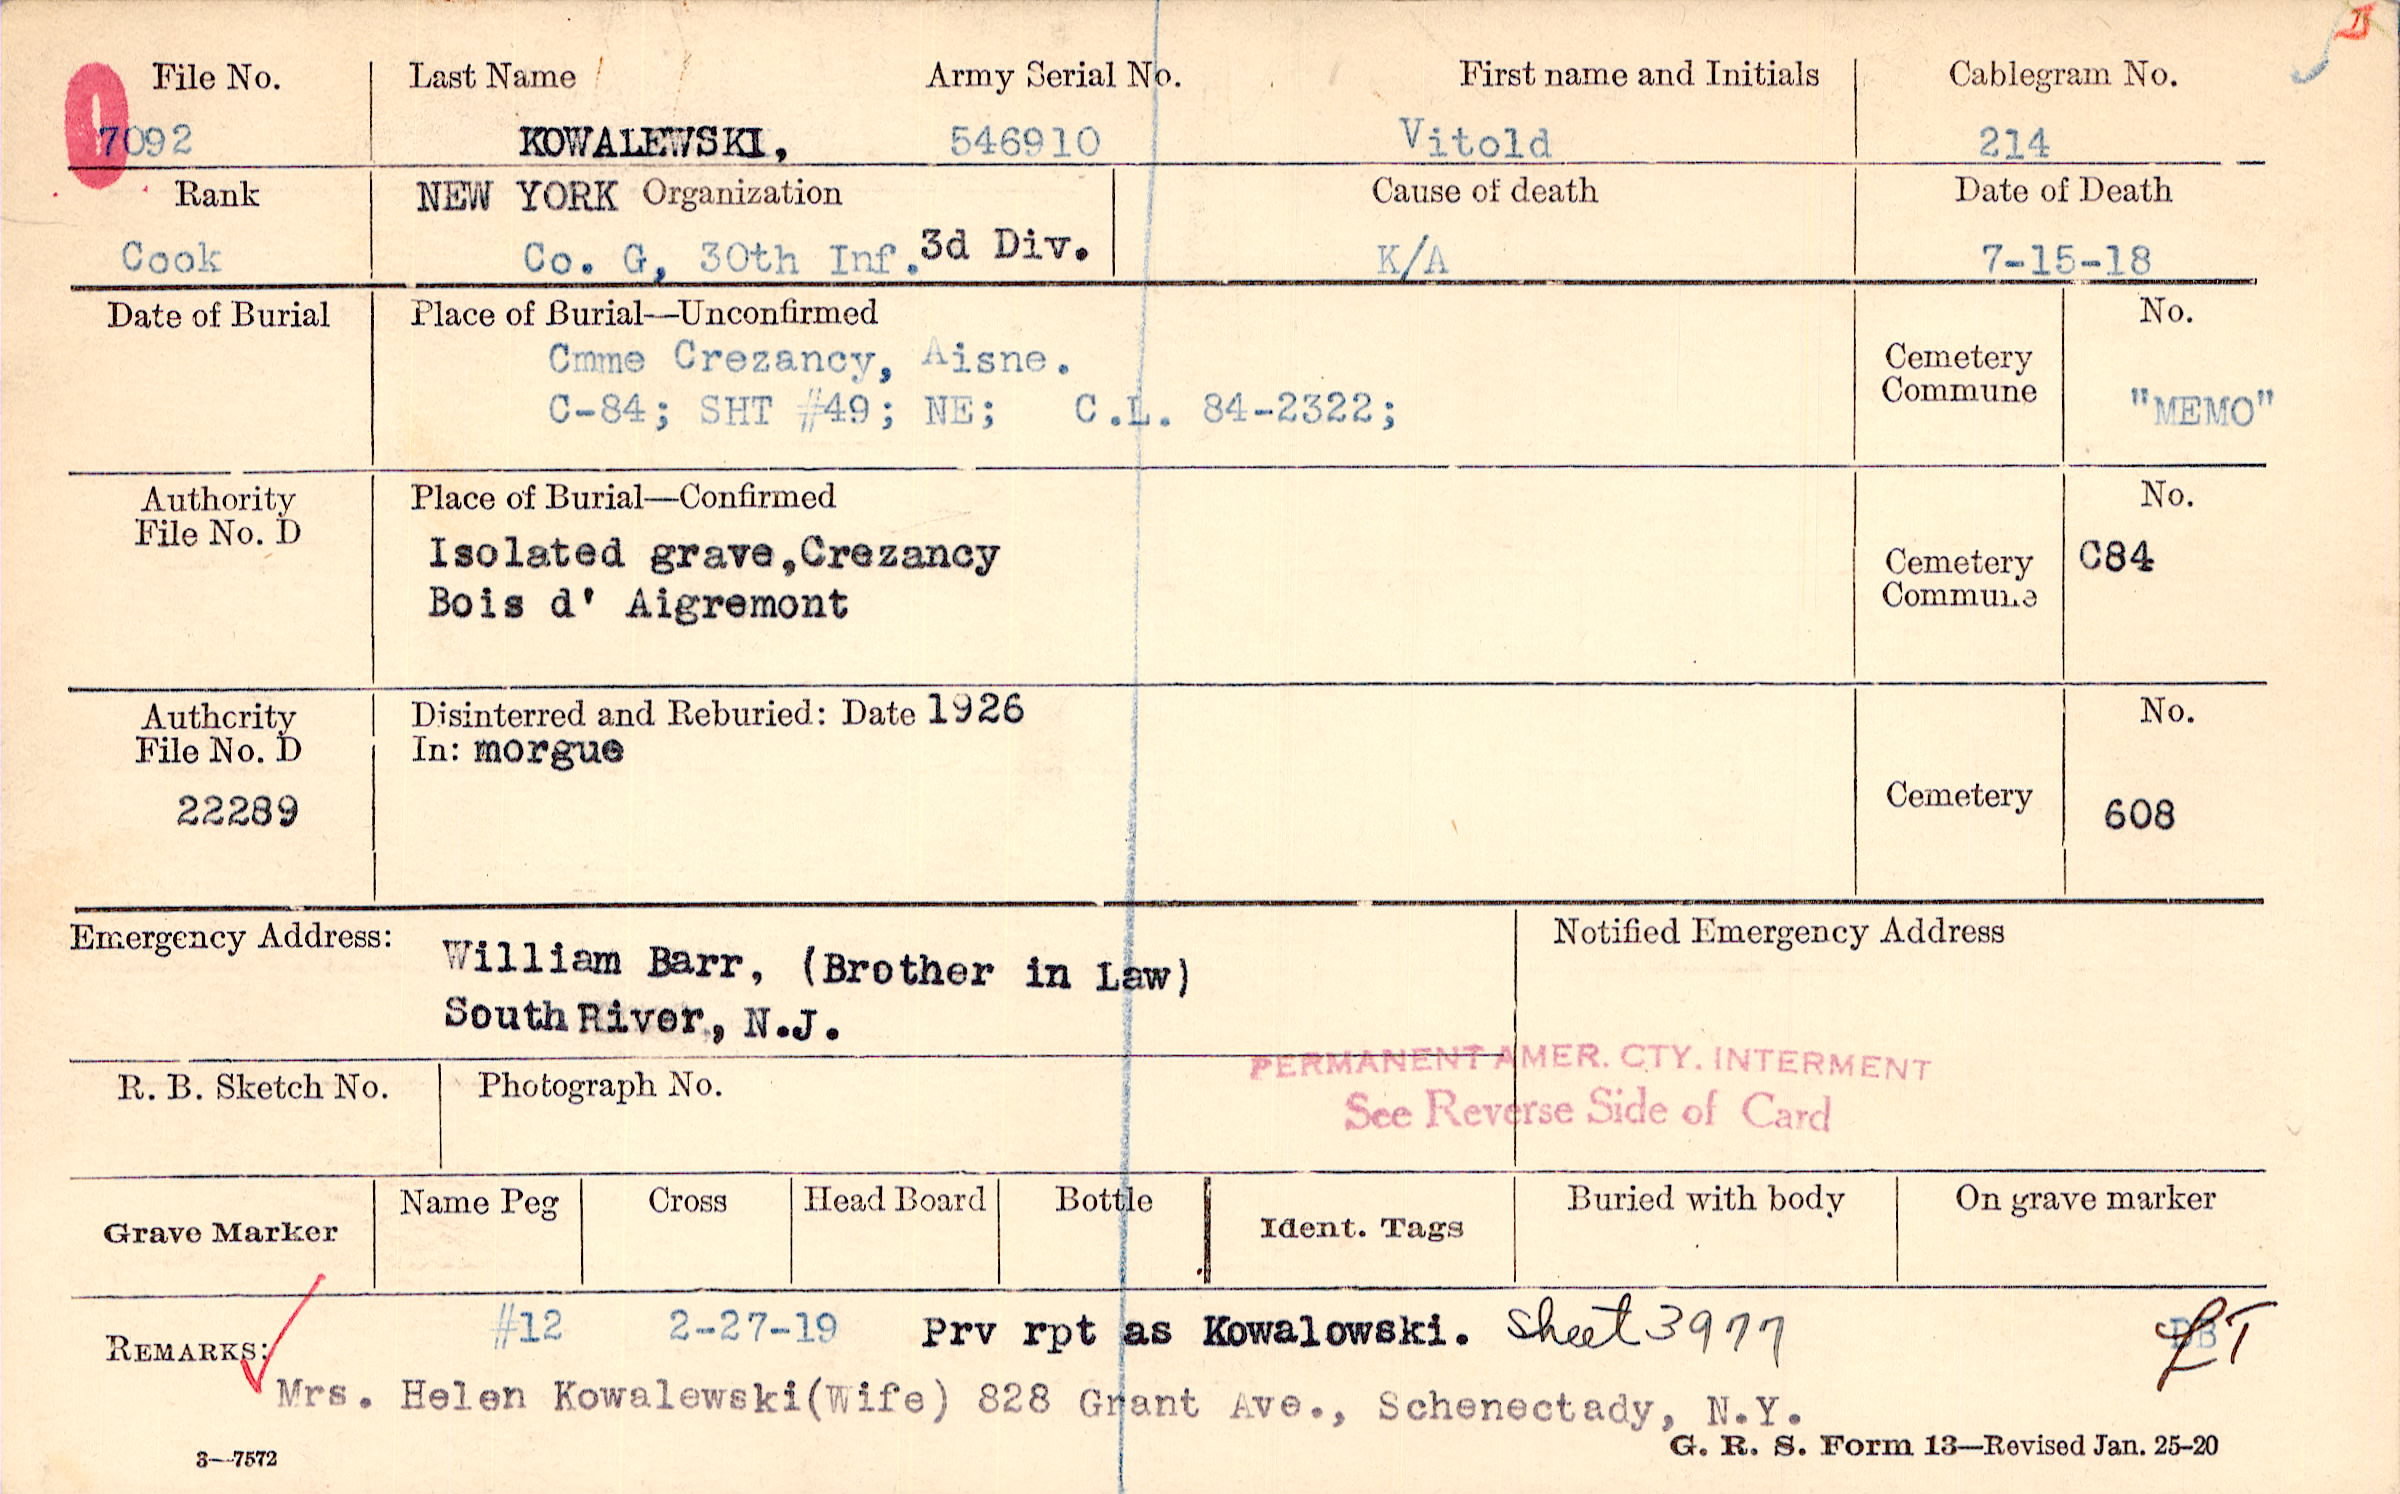 File No. Last Name Army Serial No. First name and Initials Cablegram No.
7092 KOWALEWSKI, 546910 Vitold 214
Rank NEW YORK Organization Cause of death Date of Death
Cook Co. G, 30th Inf. 3d Div. K/A 7-15-18
Date of Burial Place of Burial—Unconfirmed No.
Cmme Crezancy, Aisne. Cemetery
Commune
C-84; SHT #49; NE; C.L. 84-2322; "MEMO"
Authority Place of Burial—Confirmed No.
File No. D
Isolated grave,Crezancy Cemetery C84
Commune
Bois d' Aigremont
Authority Disinterred and Reburied: Date 1926 No.
File No. D In: morgue
22289 Cemetery 608
Emergency Address: Notified Emergency Address
William Barr, (Brother in Law)
South River, N.J.
PERMANENT AMER. CTY. INTERMENT
R. B. Sketch No. Photograph No.
See Reverse Side of Card
Grave Marker Name Peg Cross Head Board Bottle Ident. Tags Buried with body On grave marker
REMARKS: #12 2-27-19 Prv rpt as Kowalowski. Sheet 3977
Mrs. Helen Kowalewski(Wife) 828 Grant Ave., Schenectady, N.Y.
3—7572 G. R. S. Form 13—Revised Jan. 25-20